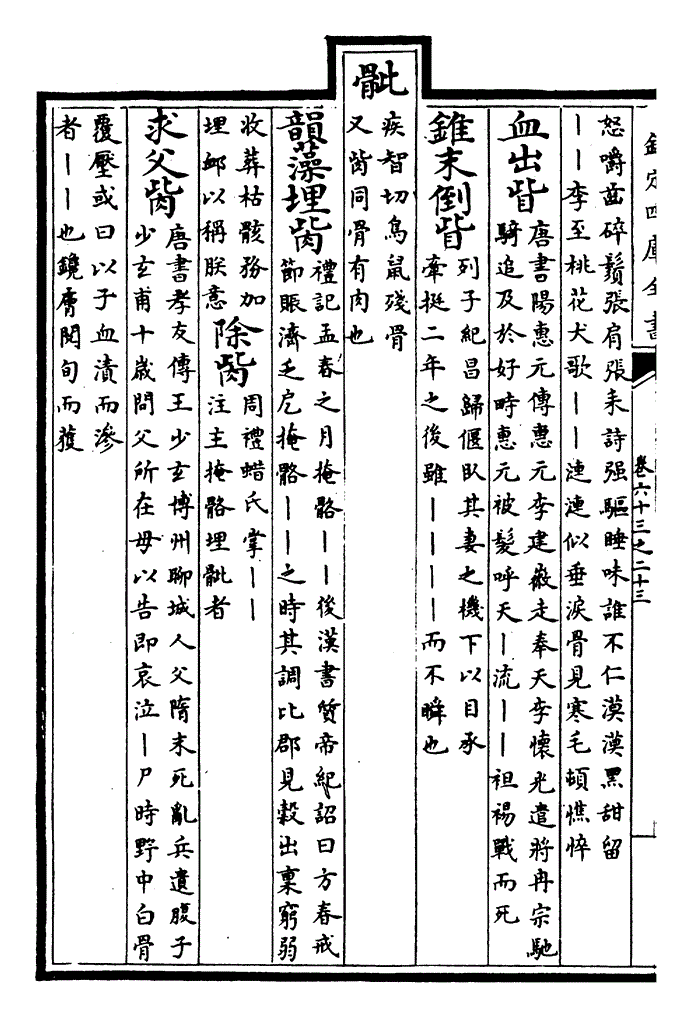 欽定四庫全書
卷六十三之二十三
怒嚼齒碎鬚張肩張耒詩强驅睡味誰不仁漠漠黑甜留
丨丨李至桃花犬歌丨丨漣漣似垂淚骨見寒毛頓憔悴
血出眥
唐書陽惠元傳惠元李建徽走奉天李懷光遣將冉宗馳
騎追及於好畤惠元被髪呼天丨流丨丨袒裼戰而死
錐末倒眥
列子紀昌歸偃臥其妻之機下以目承
牽挺二年之後雖丨丨丨丨而不瞬也
骴
疾智切鳥鼠殘骨
又胔同骨有肉也
韻藻埋胔
禮記孟春之月掩骼丨丨後漢書質帝紀詔曰方春戒
節賑濟乏戹掩骼丨丨之時其調比郡見穀出稟窮弱
收葬枯骸務加
埋卹以稱朕意
除胔
周禮蜡氏掌丨丨
注主掩骼埋骴者
求父胔
唐書孝友傳王少玄博州聊城人父隋末死亂兵遺腹子
少玄甫十歲問父所在母以告即哀泣丨尸時野中白骨
覆壓或曰以子血漬而滲
者丨丨也鑱膚閱旬而獲